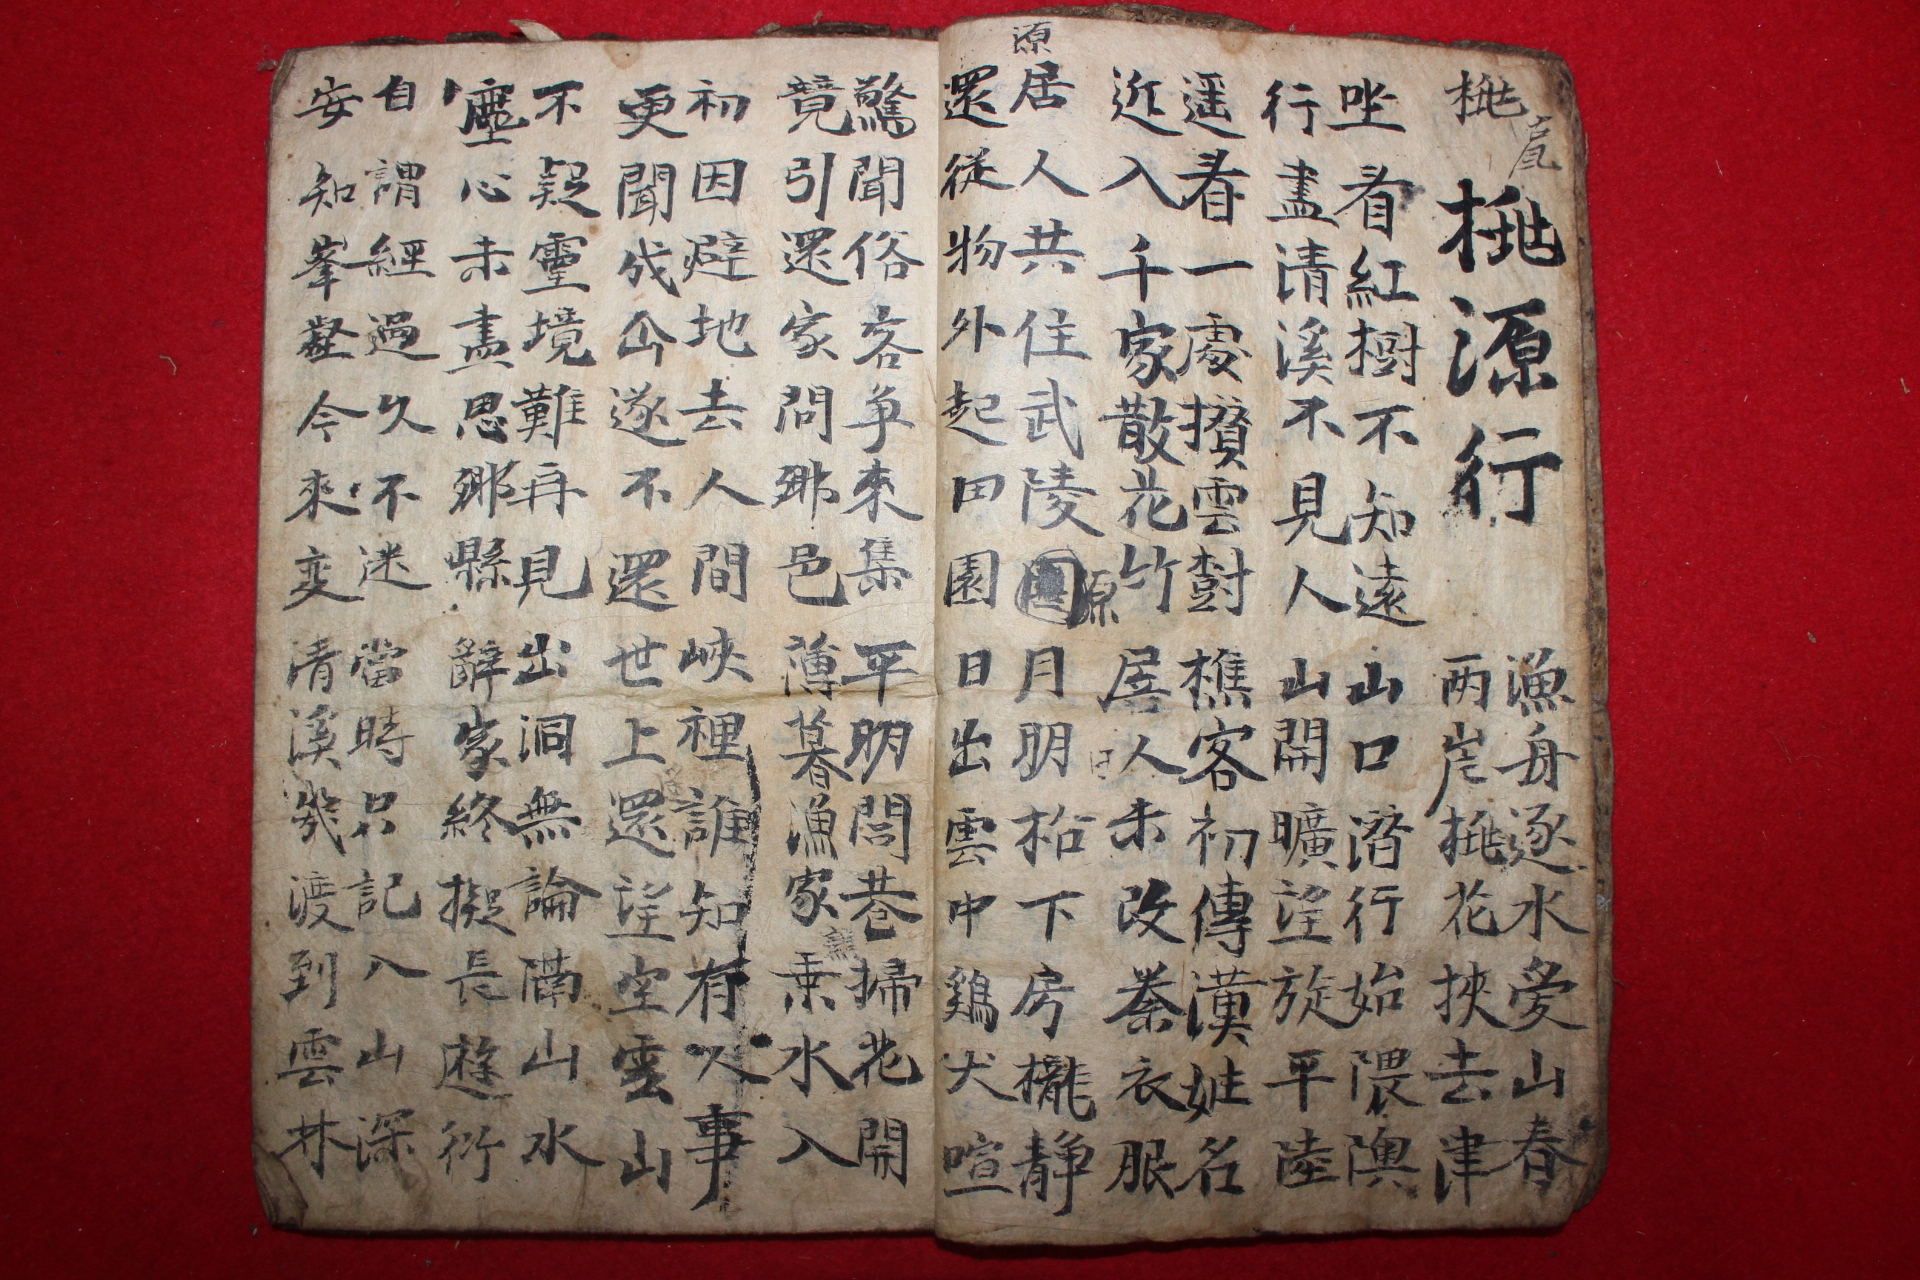 桃
桃源行
漁舟逐水愛山春
両岸桃花挾去津
坐看紅樹不知遠 山口潛行始隈隩
行盡清溪不見人 山開曠望旋平陸
遥看一處攅雲樹 樵客初傳漢姓名
近入千家散花竹 居人未改秦衣服
源
居人共住武陵源 月明松下房櫳靜
還從物外起田園 日出雲中鷄犬喧
驚聞俗客爭來集 平明閭巷掃花開
竟引還家問鄉邑 薄暮漁家乘水入
初因避地去人間 峽裡誰知有人事
更聞成仚遂不還 世上還望空雲山
不疑靈境難再見 出洞無論隔山水
塵心未盡思鄉縣 辭家終擬長遊衍
自謂經過久不迷 當時只記入山深
安知峯壑今來変 清溪幾渡到雲林